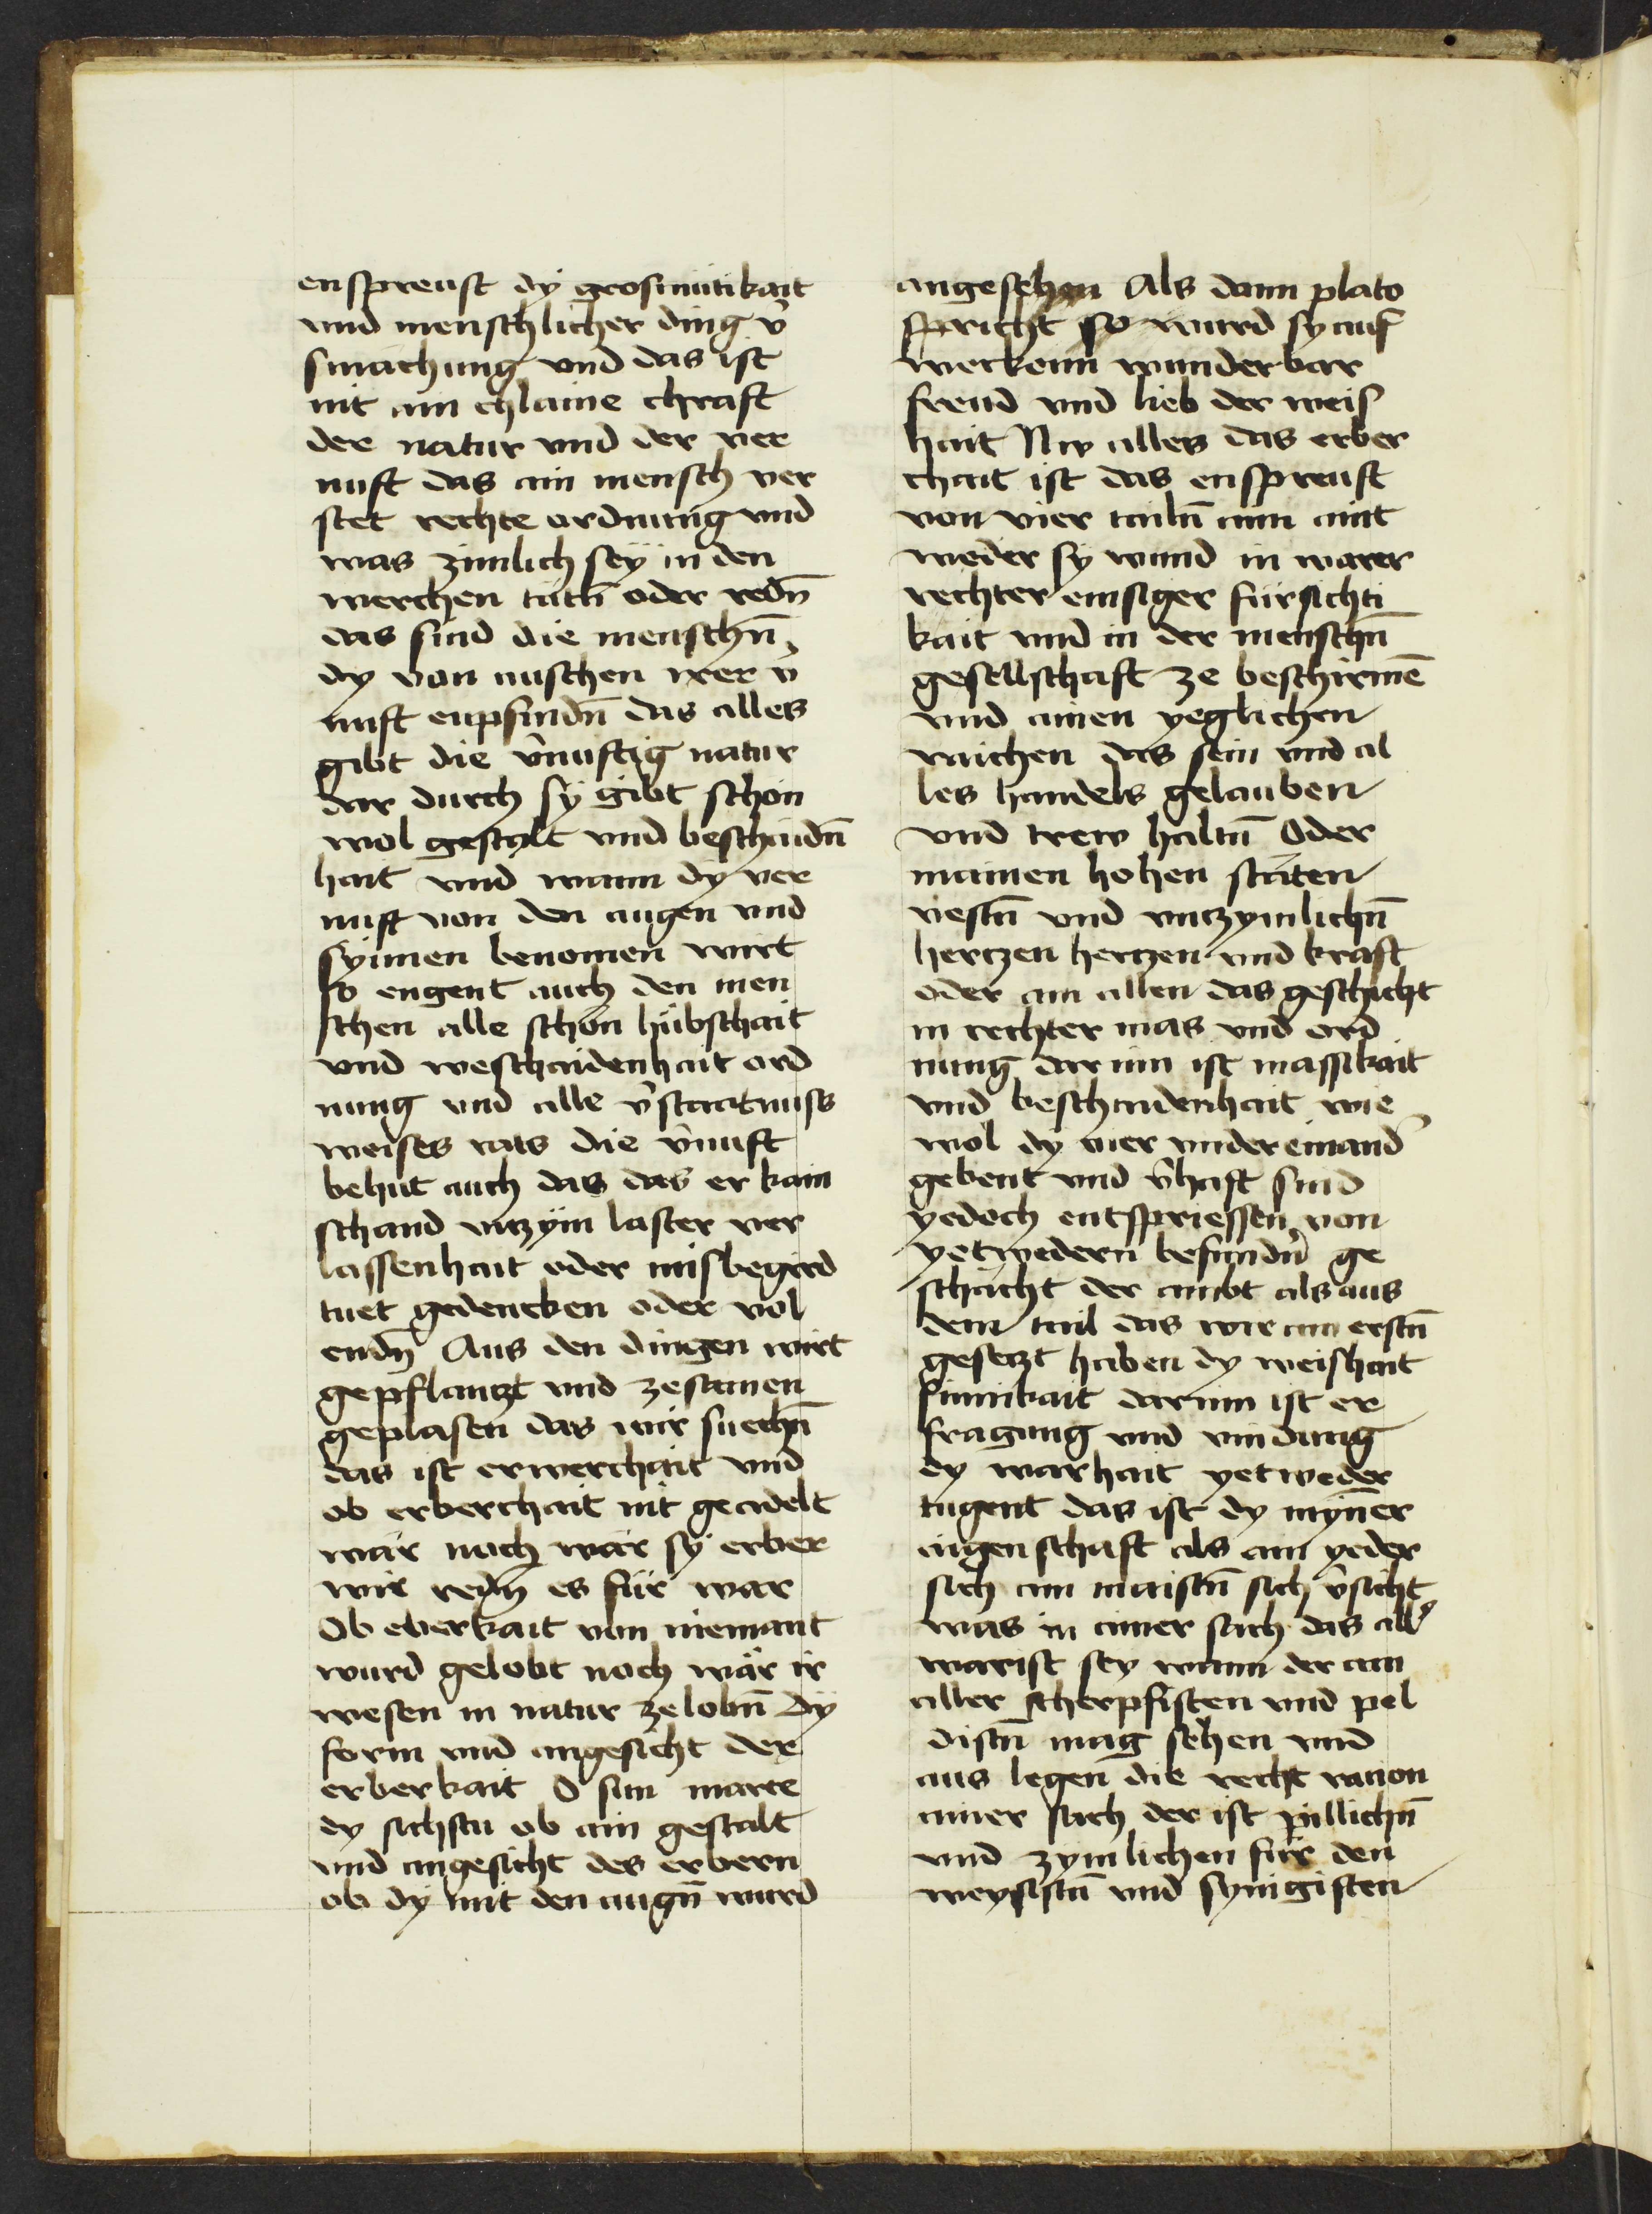 enspreust dy grosmütikait
vnd menschlicher ding v̾
smachung vnd das ist
nit ain chlaine chraft
der natur vnd der ver
nuft das ain mensch ver
stet rechte ordnung vnd
was zimlich sey in den
werchen tätn̄ oder redn̄
das sind die menschn̄
dy von auschen irer v̾
nuft enpfindn̄ das alles
gibt die v̾nuftig natur
dar durch sy gibt schön
wol gestalt vnd beschaidn̄
hait vnd wann dy ver
nuft von den augen vnd
synnen benomen wirt
so engent auch den men
schen alle schön hübschait
vnd weschaidenhait ord
nung vnd alle v̾staatnuss
weises rats die v̾nuft
behüt auch das das er kain
schand vnzym laster ver
lassenhait oder misbegird
tuet gedencken oder vol
endn̄ Aus den dingen wirt
gepflantzt vnd zesamen
geplasen das wir suechn̄
das ist erwerchait vnd
ob erberchait nit geadelt
wär noch wär sy erber
wir redn̄ es für war
Ob eberkait von niemant
wurd gelobt noch wär ir
wesen in natur zelobn̄ Dy
form vnd angesicht der
erberkait O sun marce
dy sichstu ob ain gestalt
vnd angesicht des erbern
ob dy mit den augn̄ wurd
angesehen Als dann plato
spricht so wurd sy auf
werkenn wunderbar
freud vnd lieb der weis
hait Nw alles das erber
chait ist das enspreust
von vier tailn̄ aim aint
weder sy wund in warer
rechter emsiger fürsichti
kait vnd in der menschn̄
gesellschaft ze beschirmē
vnd ainen yeglichen
raichen das sein vnd al
les handels gelauben
vnd trew haltn̄ Oder
in ainen hohen stäten
vestn̄ vnd vnzymlichn̄
hertzen hertzen vnd kraft
oder an allen das geschicht
in rechter mas vnd ord
nung dar inn ist massikait
vnd beschaidenhait wie
wol dy vier vnder einand̾
gebent vnd v̾haft sind
yedoch entspriessen von
yetwedern besundn̄ ge
schächt der ambt als aus
dem tail das wir am erstn̄
gesetzt haben dy weishait
sinnikait darinn ist er
fragung vnd vindung
dy warhait yetweder
tugent das ist dy mynner
aigenschaft als ain yeder
sich am maistn̄ sich v̾sicht
was in ainer sach das all̾
warist sey wann der am
aller scherpfisten vnd pel
distn̄ mag sehen vnd
aus legen die recht racion
ainer sach der ist pillichn̄
vnd zymlichen für den
weysistn̄ vnd synnigisten